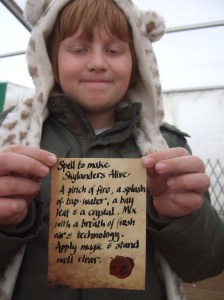 Spell to make
Skylanders Alive
A pinch of fire, a splash
of tap-water, a bay
leaf & a crystal. Mix
with a breath of fresh
air & technology.
Apply magic & stand
well clear.